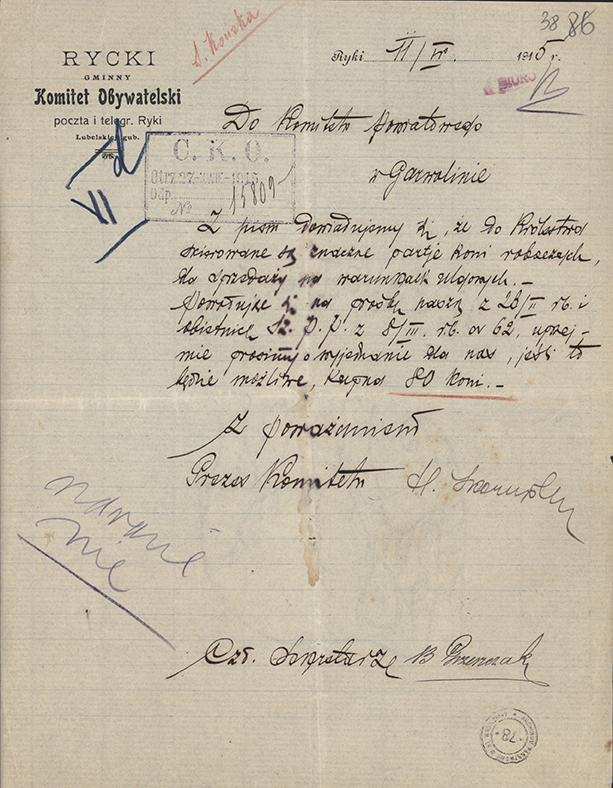 38 86
RYCKI
GMINNY
Komitet Obywatelski
poczta i telegr. Ryki
Lubelskiej gub.
Ryki 11/IV. 1915 r.
BIURO
Do Komitetu Powiatowego
w Garwolinie
C. K. O.
Otrz. 27
Odp.
№ 15809
VI d
Z pism dowiadujemy się, że do Królestwa
skierowane są znaczne partje koni roboczych,
do sprzedaży na warunkach ulgowych.-
Powołując się na prośbę naszą z 28/II rb. i
Sz. P. P. z 8/III. rb. № 62, uprzej-
mie prosimy o wyjednanie dla nas, jeśli to
będzie możliwe, kupna 80 koni.-
Z poważaniem
Prezes Komitetu
narazie
nie
Czł. Sekretarz B
78